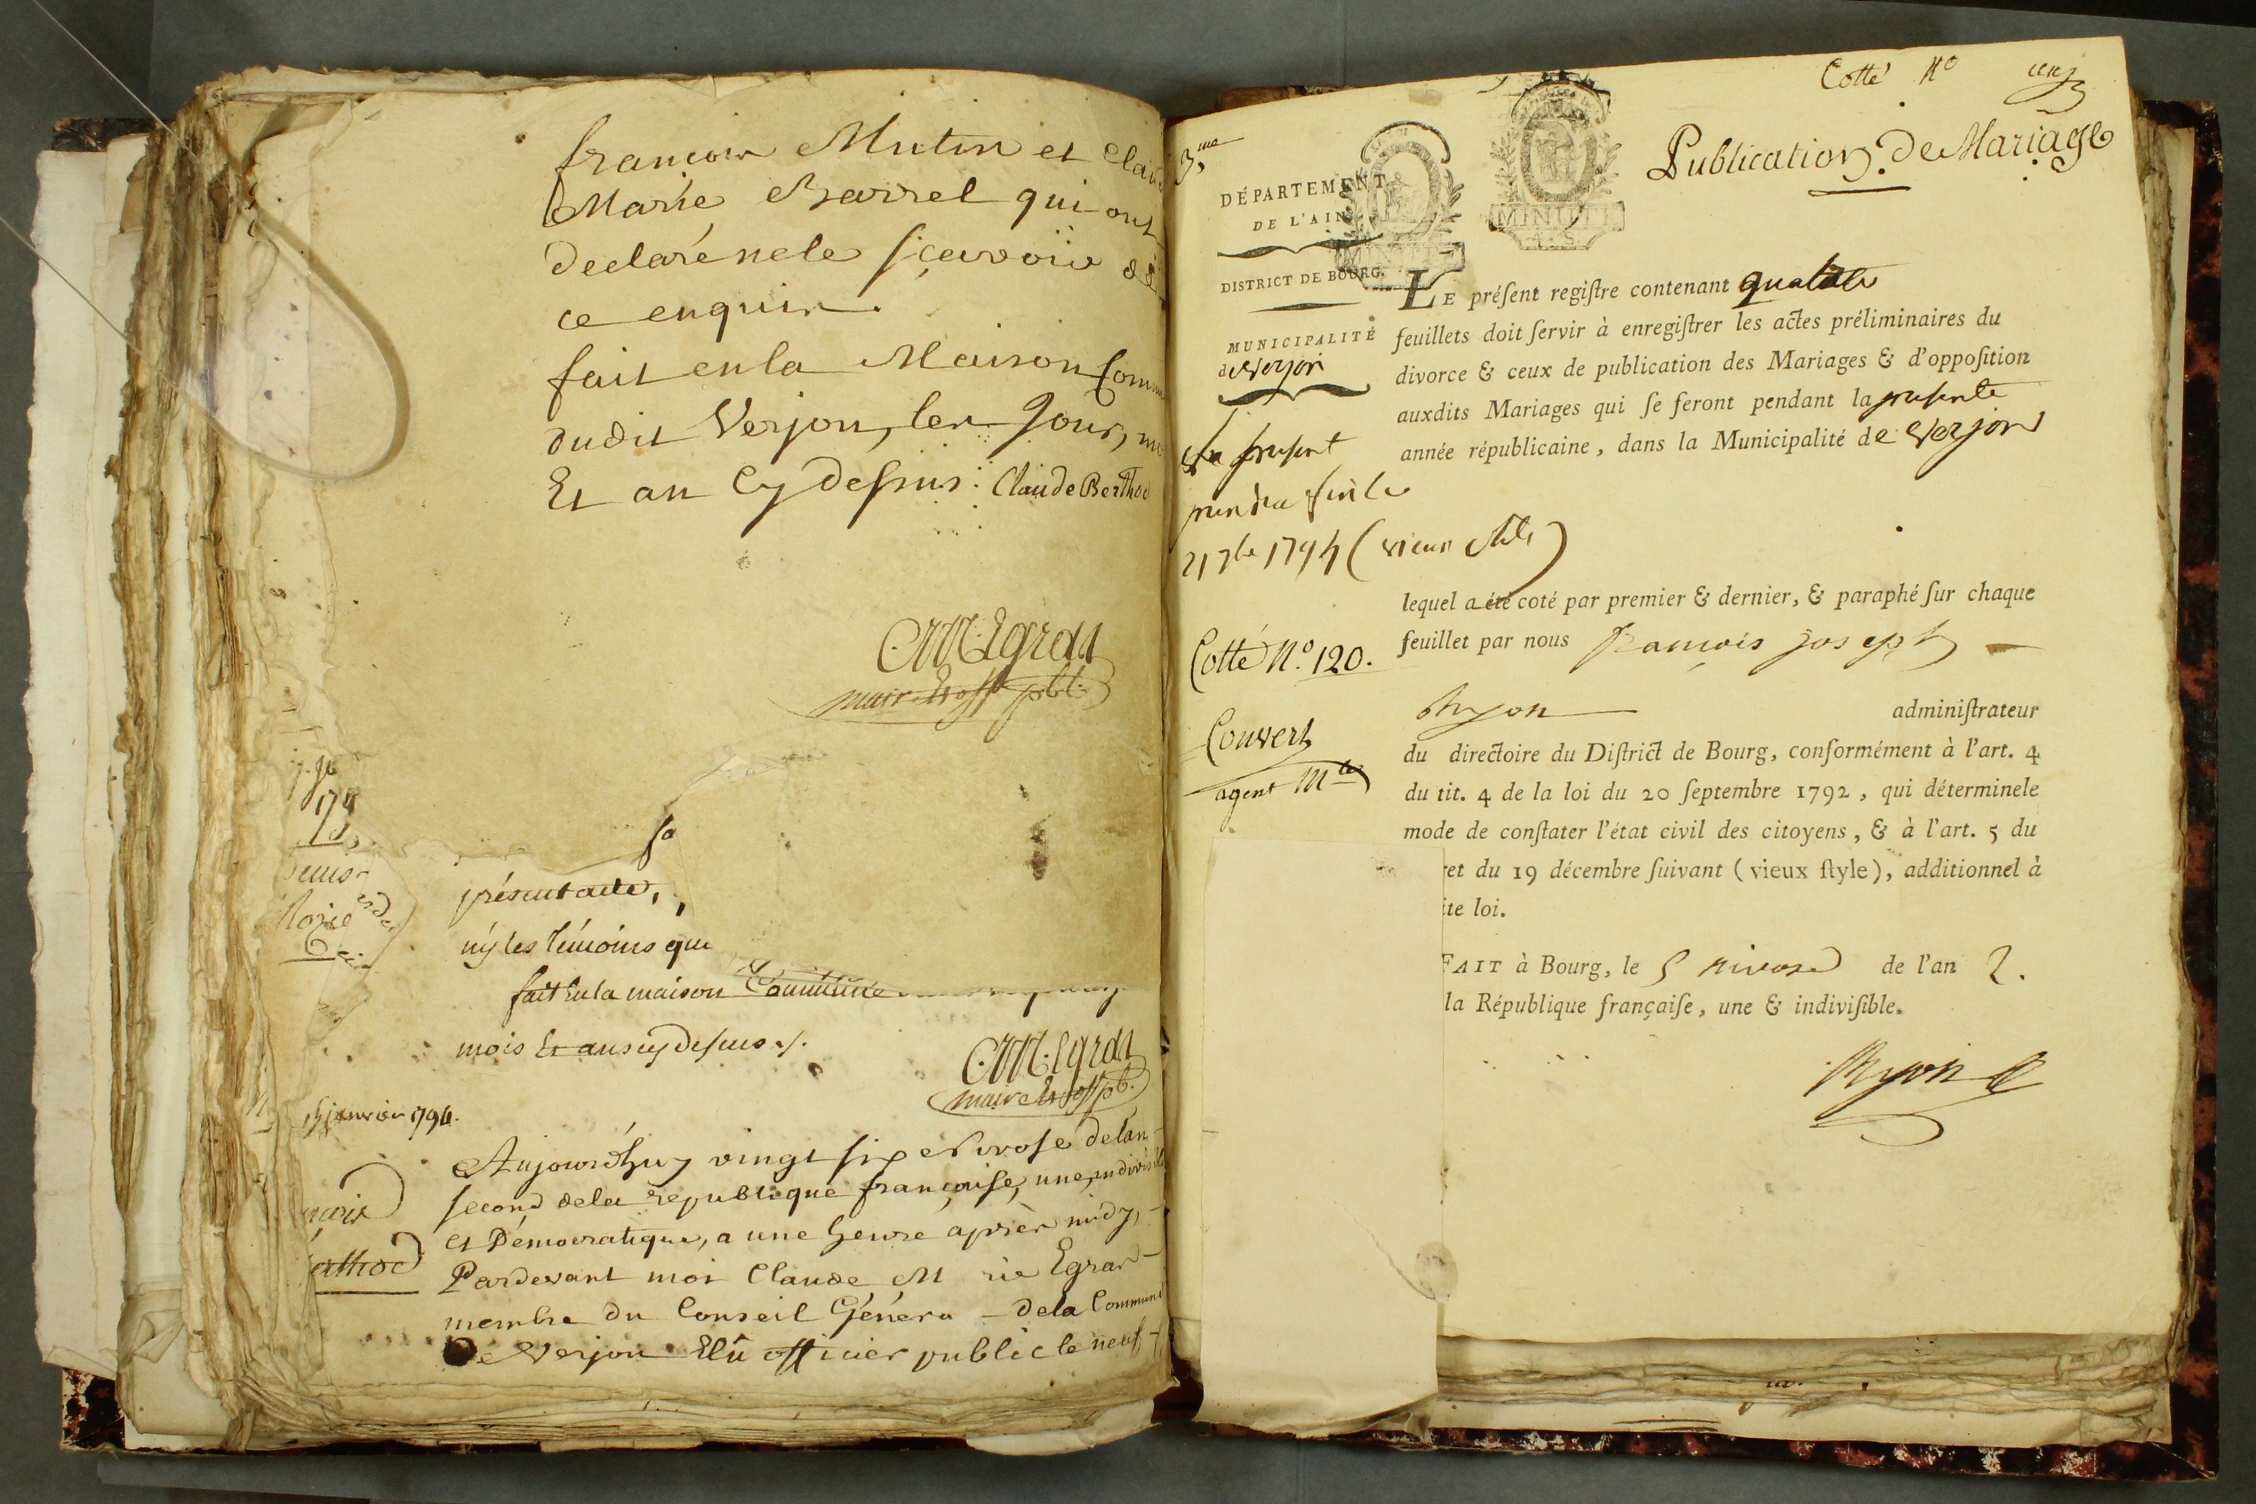 francois Mutin et Claud
Marie Barrel qui ont
declaré ne le sçavoir de
ce enquis.
fait en la Maison Comm
dudit Verjon, les Jour, m
Et an Cy dessus: Claude Berthod
CM Egraz
maire et off pbl.
179
présent acte,
ny les témoins que
fait En la maison Commune
mois Et an cy dessus
CM Egraz
maire Et off pb.
janvier 1794.
Aujourd'huy vingt six Nivose de l'an
second de la republique françoise, une, indivisi
et Démocratique, a une heure après midy,
Pardevant moi Claude M rie Egraz
membre du Conseil Généra de la Commune
De Verjon Elû officier public le neuf
erthod
Cotté No un
Publication de Mariage
3me
DÉPARTEMENT
DE L'AIN
MINUTE
MINUTE
4. S.
DISTRICT DE BOURG.
MUNICIPALITÉ
de Verjon
le present
prendra fin le
21 7bre 1794 (vieux stile)
Cotté No. 120.
Couvert
agent Mal
LE préſent regiſtre contenant quatre
feuillets doit ſervir à enregiſtrer les actes préliminaires du
divorce & ceux de publication des Mariages & d'oppoſition
auxdits Mariages qui ſe feront pendant la presente
année républicaine, dans la Municipalité de Verjon
lequel a été coté par premier & dernier, & paraphé ſur chaque
feuillet par nous francois joseph
administrateur
du directoire du Diſtrict de Bourg, conformément à l'art. 4
du tit. 4 de la loi du 20 ſeptembre 1792, qui déterminele
mode de conſtater l'état civil des citoyens, & à l'art. 5 du
ret du 19 décembre ſuivant (vieux ſtyle), additionnel à
ite loi.
FAIT à Bourg, le 5 nivose de l'an 2.
la République françaiſe, une & indiviſible.